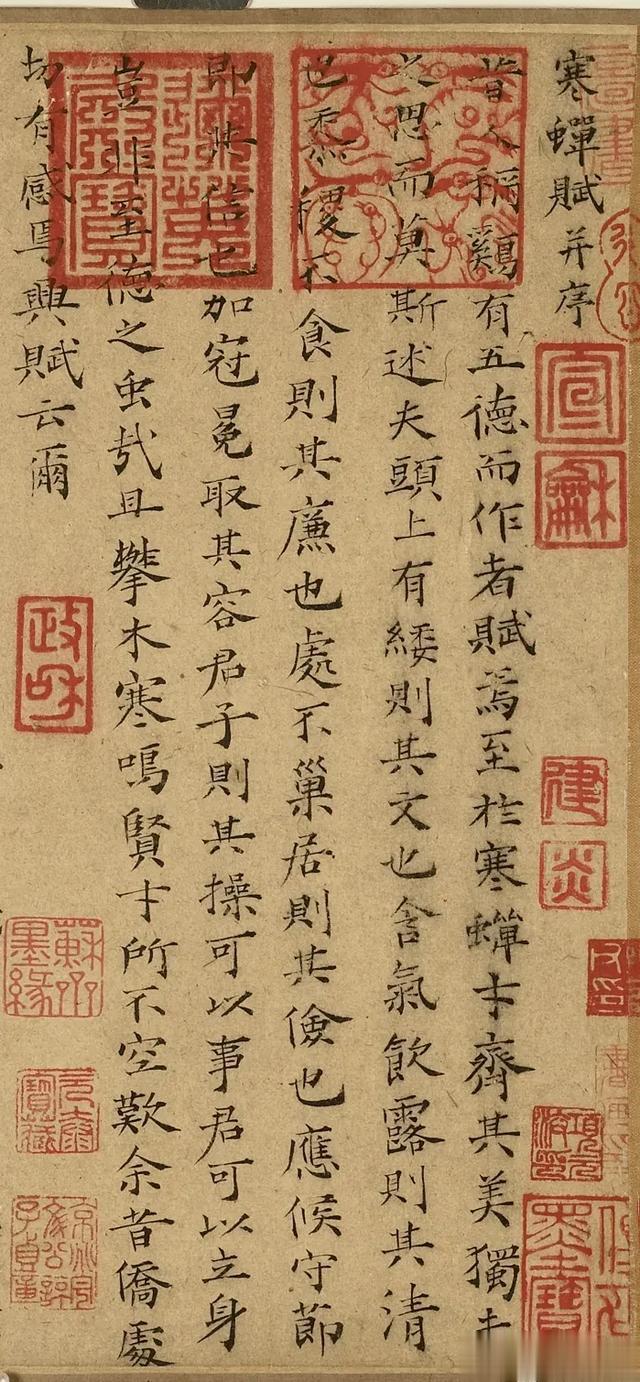 寒蟬賦并序
昔人稱鷄有五德而作者賦焉至於寒蟬才齊其美獨未
之思而莫斯述夫頭上有緌則其文也含氣飲露則其清
也黍稷不食則其廉也處不巢居則其儉也應候守節
即其信也加冠冕取其容君子則其操可以事君可以立身
豈非至德之虫哉且攀木寒鳴賢才所不空歎余昔僑處
切有感焉興賦云爾
宣龢
建炎
政和